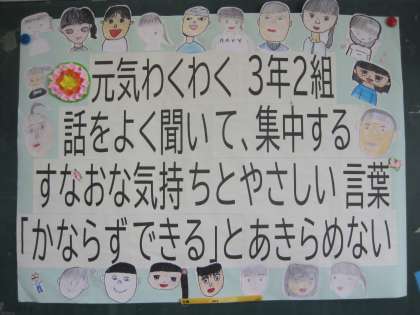 元気わくわく 3年2組
話をよく聞いて、集中する
すなおな気持ちとやさしい言葉
「かならずできる」とあきらめない